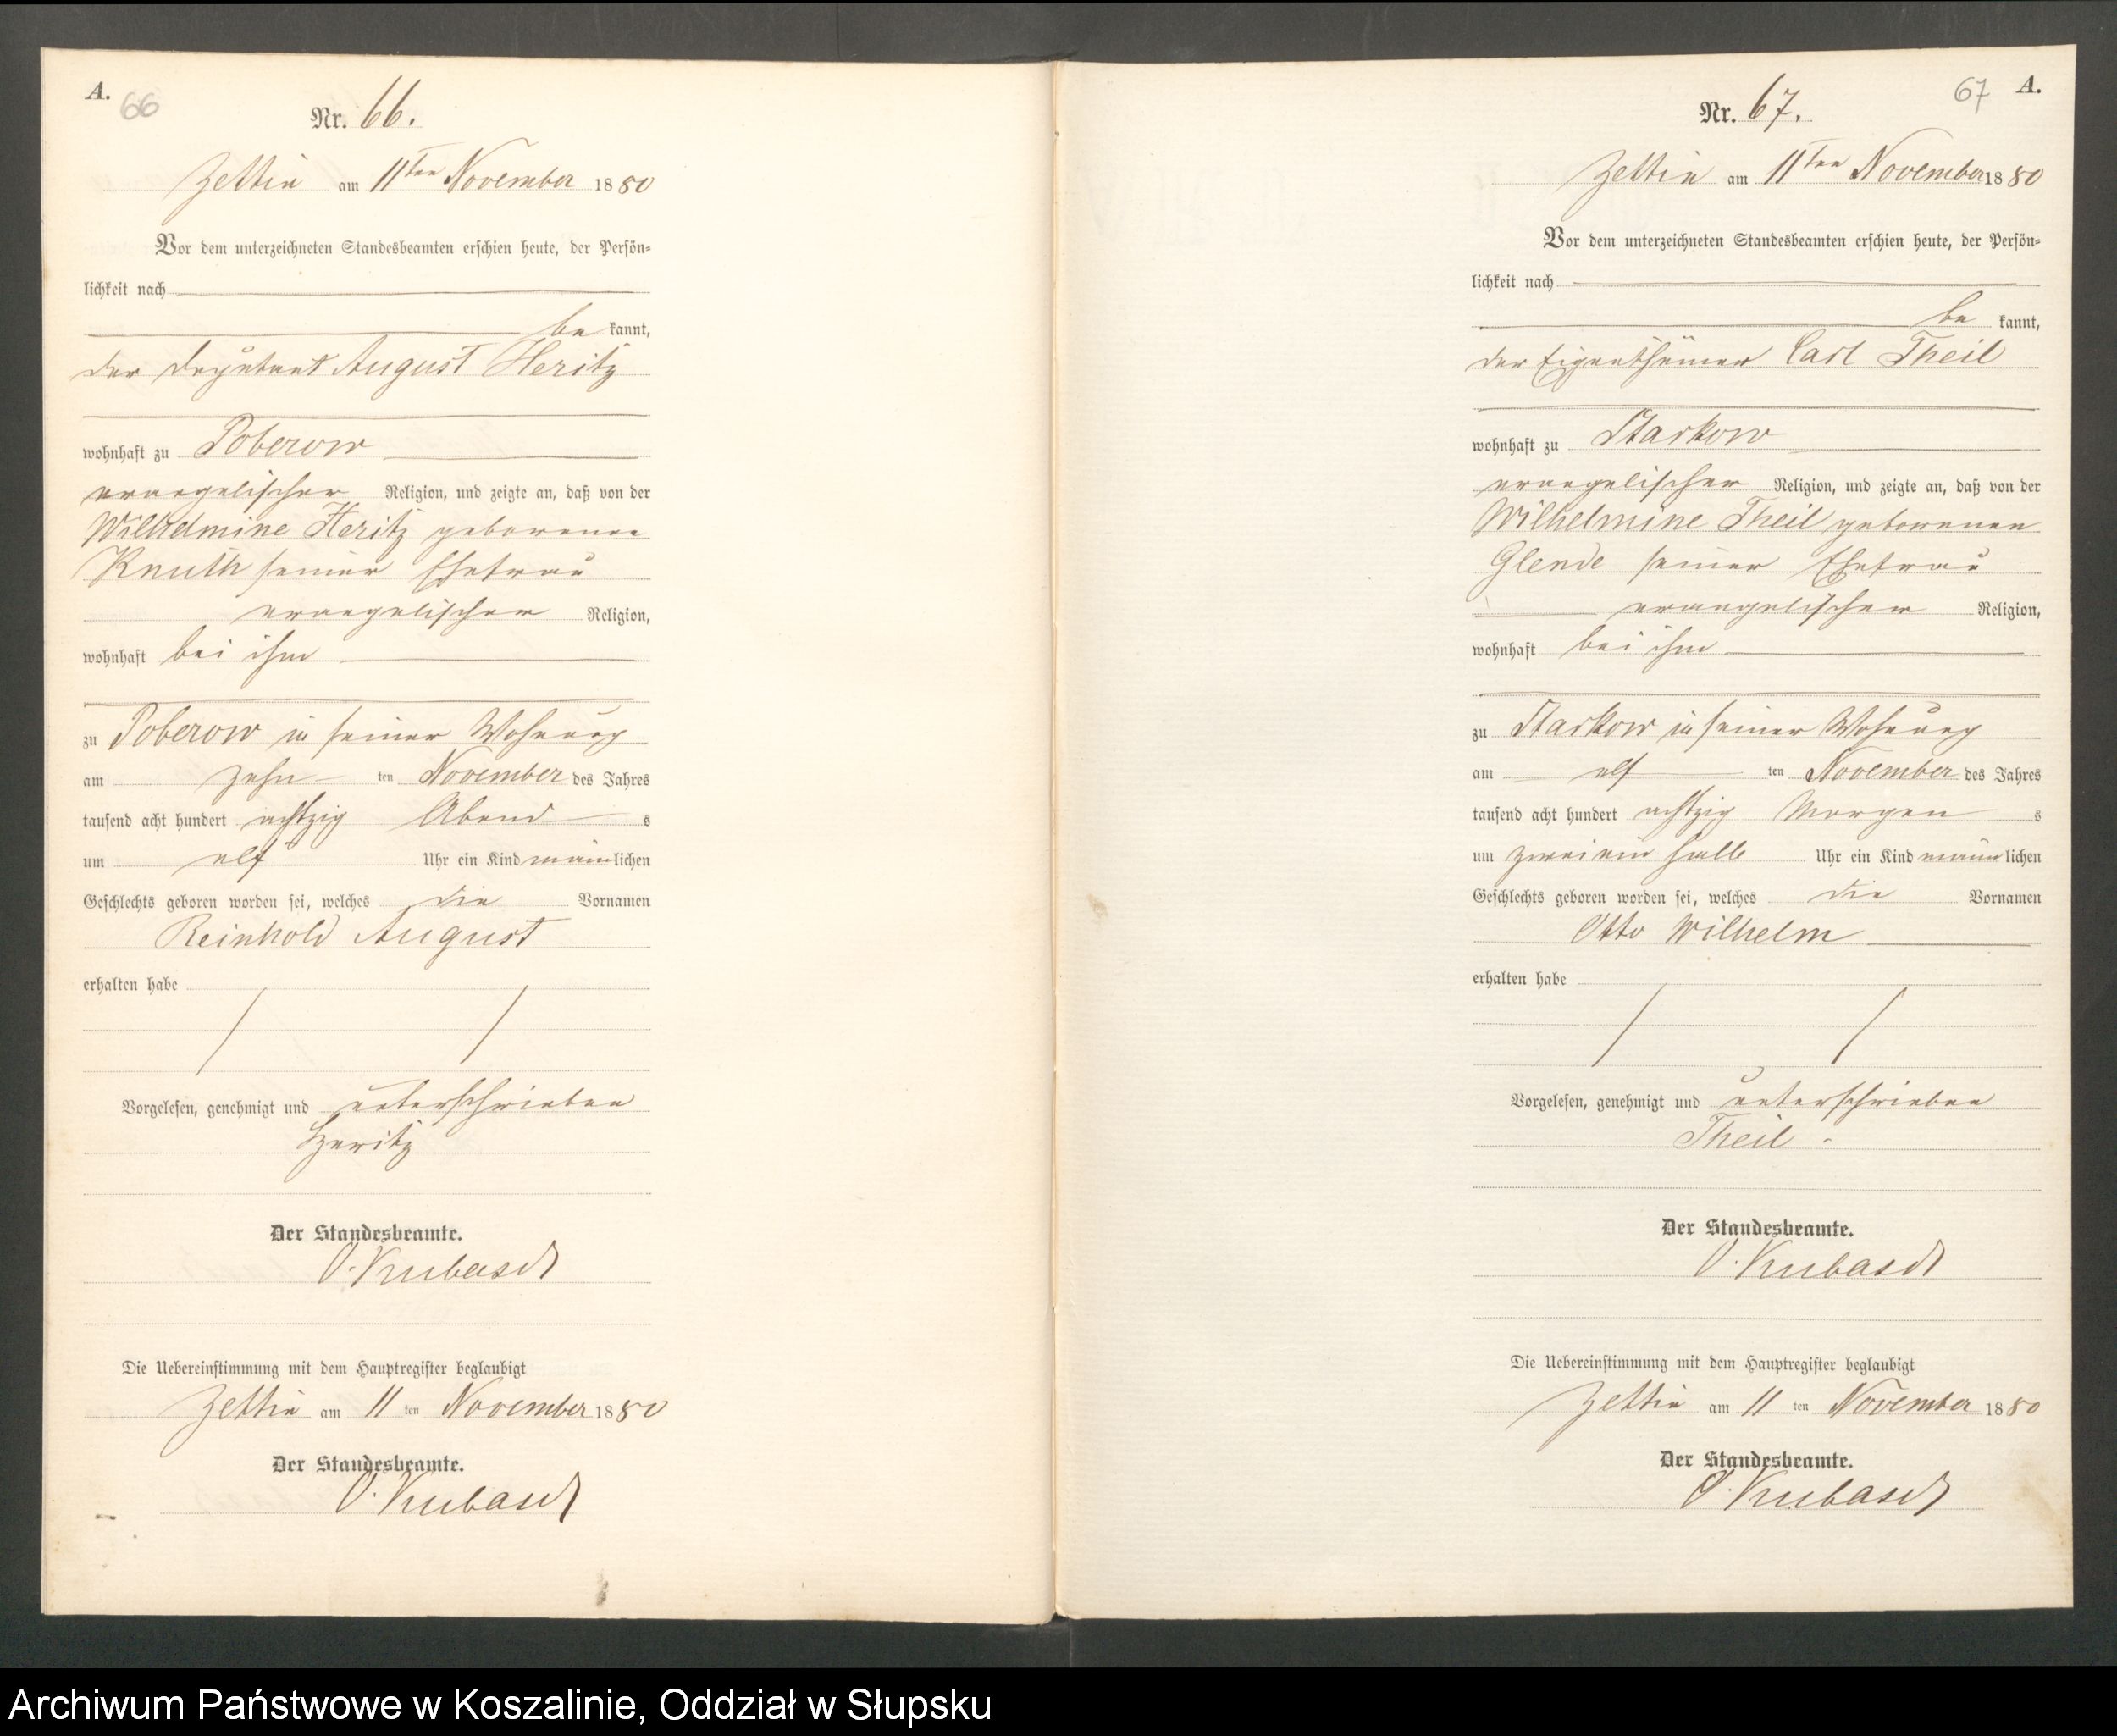 A.
66
Nr. 66.
Zettin am 11ten November 1880
Vor dem unterzeichneten Standesbeamten erschien heute, der Persön-
lichkeit nach
be kannt,
der Deputant August Heritz
wohnhaft zu Poberow
evangelischer Religion, und zeigte an, daß von der
Wilhelmine Heritz geborenen
Knuth seiner Ehefrau
evangelischer Religion,
wohnhaft bei ihm
zu Poberow in seiner Wohnung
am zehn ten November des Jahres
tausend acht hundert achtzig Abend s
um elf Uhr ein Kind männlichen
Geschlechts geboren worden sei, welches die Vornamen
Reinhold August
erhalten habe
Vorgelesen, genehmigt und unterschrieben
Heritz
Der Standesbeamte.
O. Kubasch
Die Uebereinstimmung mit dem Hauptregister beglaubigt
Zettin am 11 ten November 1880
Der Standesbeamte.
O. Kubasch
67 A.
Nr. 67.
Zettin am 11ten November 1880
Vor dem unterzeichneten Standesbeamten erschien heute, der Persön-
lichkeit nach
be kannt,
der Eigenthümer Carl Theil
wohnhaft zu Starkow
evangelischer Religion, und zeigte an, daß von der
Wilhelmine Theil geborenen
Glende seiner Ehefrau
evangelischer Religion,
wohnhaft bei ihm
zu Starkow in seiner Wohnung
am elf ten November des Jahres
tausend acht hundert achtzig Morgen s
um zwei ein halb Uhr ein Kind männlichen
Geschlechts geboren worden sei, welches die Vornamen
Otto Wilhelm
erhalten habe
Vorgelesen, genehmigt und unterschrieben
Theil
Der Standesbeamte.
O. Kubasch
Die Uebereinstimmung mit dem Hauptregister beglaubigt
Zettin am 11 ten November 1880
Der Standesbeamte.
O. Kubasch
Archiwum Państwowe w Koszalinie, Oddział w Słupsku